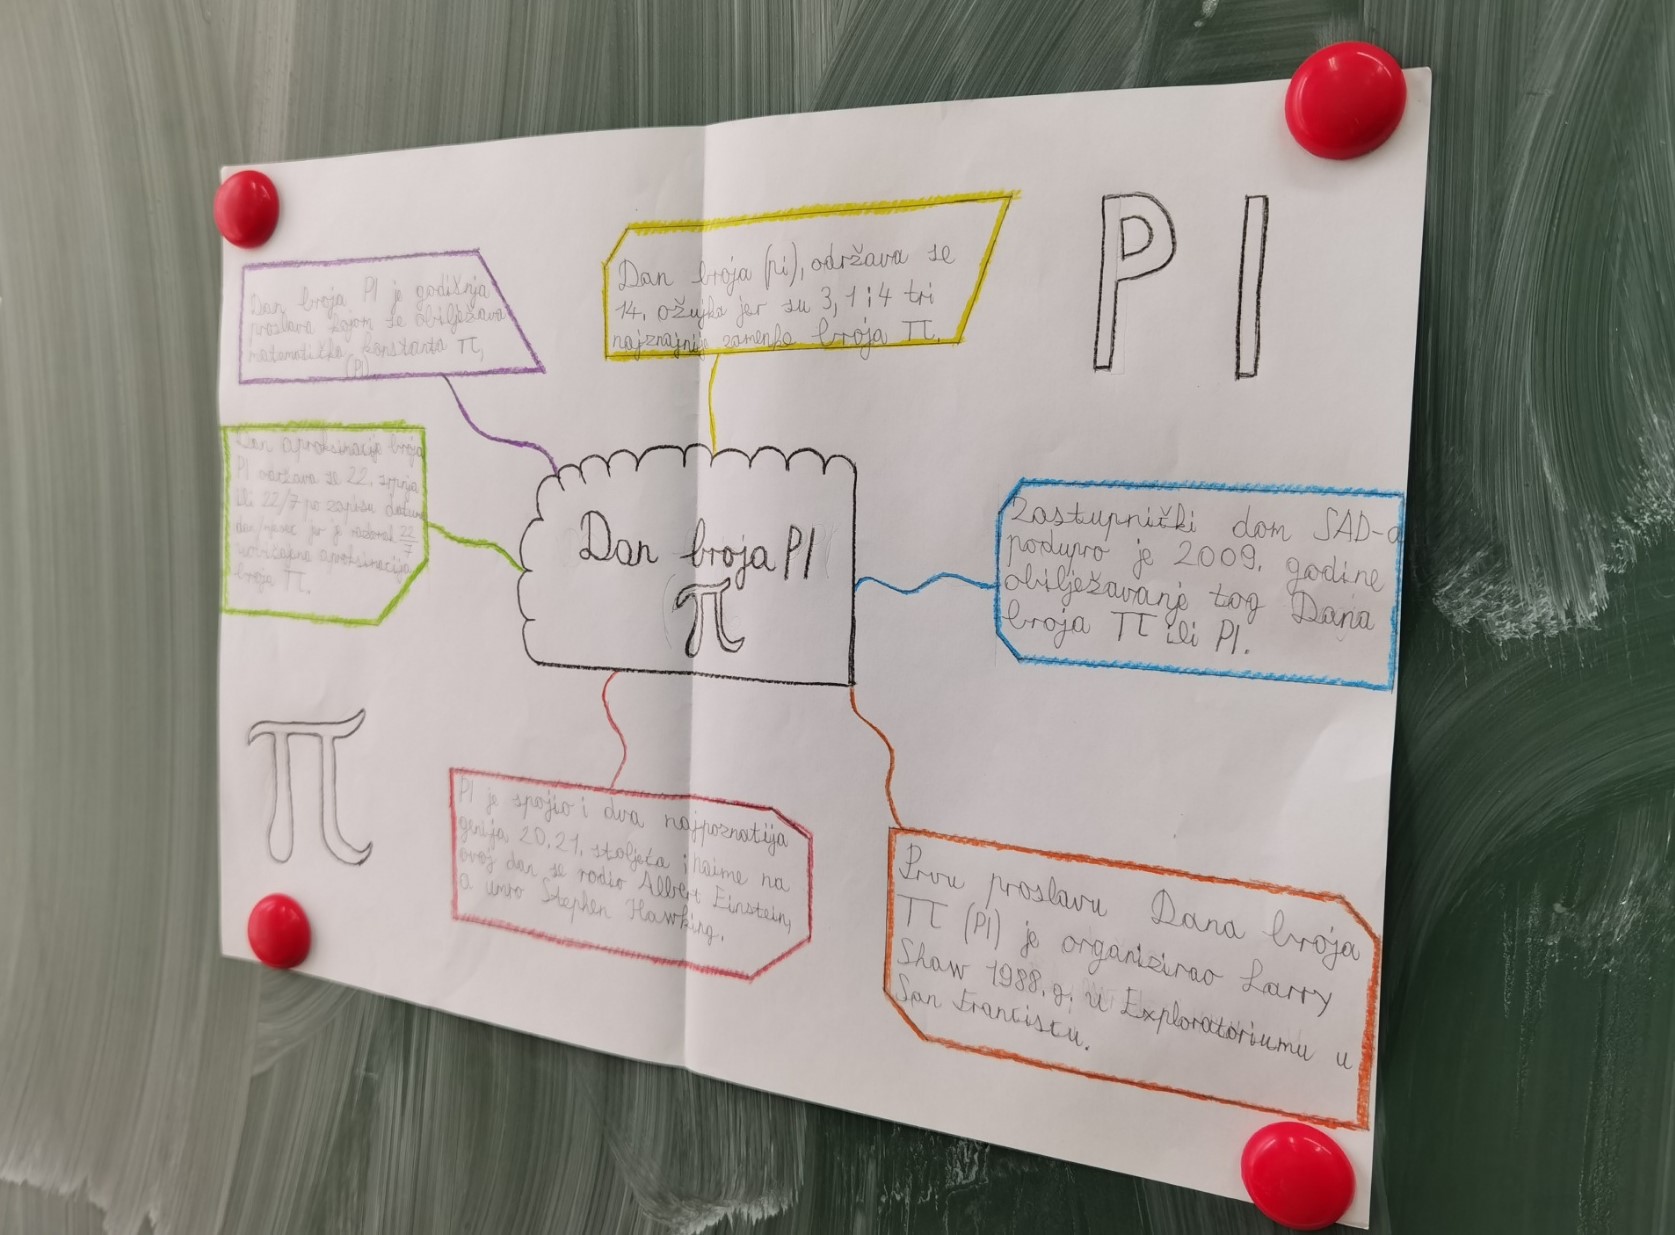 Dan broja PI je godišnja
proslava kojom se obilježava
matematička konstanta π,
(PI)
Dan broja (pi), održava se
14. ožujka jer su 3, 1 i 4 tri
najznajnije zamenke broja π.
PI
Dan aproksimacije broja
PI održava se 22. srpnja
ili 22/7 po zapisu datuma
dan/mjesec jer je razlomak 22/7
uobičajna aproksimacija
broja π.
Dan broja PI
π
Zastupnički dom SAD-a
podupro je 2009. godine
obilježavanje tog Dana
broja π ili PI.
π
PI je spojio i dva najpoznatija
genija 20.21. stoljeća i naime na
ovoj dan se rodio Albert Einstein,
a umro Stephen Hawking.
Prvu proslavu Dana broja
π (PI) je organizirao Larry
Shaw 1988.g. u Exploratoriumu u
San Franciscu.